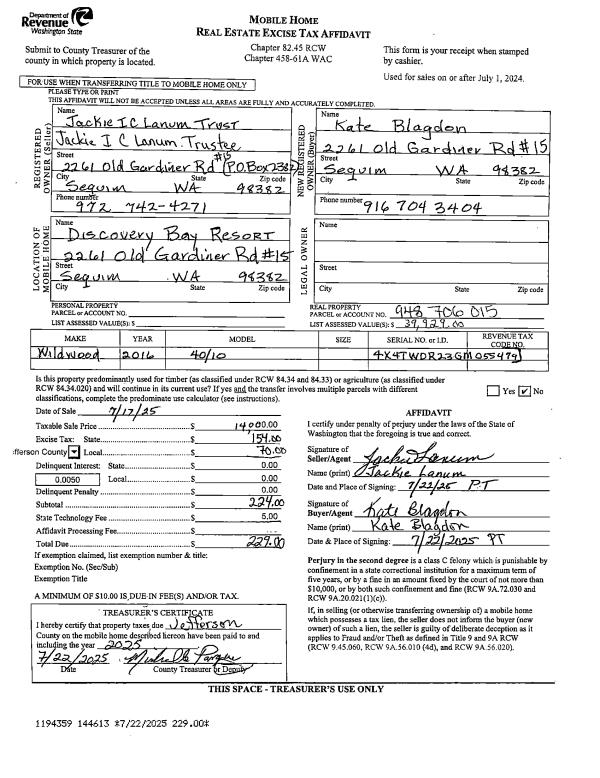 Department of
Revenue
Washington State
MOBILE HOME
REAL ESTATE EXCISE TAX AFFIDAVIT
Submit to County Treasurer of the
county in which property is located.
Chapter 82.45 RCW
Chapter 458-61A WAC
This form is your receipt when stamped
by cashier.
Used for sales on or after July 1, 2024.
FOR USE WHEN TRANSFERRING TITLE TO MOBILE HOME ONLY
PLEASE TYPE OR PRINT
THIS AFFIDAVIT WILL NOT BE ACCEPTED UNLESS ALL AREAS ARE FULLY AND ACCURATELY COMPLETED.
REGISTERED OWNER (Seller)
Name
Jackie I C Lanum Trust
Jackie I C Lanum Trustee
Street #15
2261 Old Gardiner Rd (P.O. Box 2382)
City State Zip code
Sequim WA 98382
Phone number
972 742-4271
NEW REGISTERED OWNER (Buyer)
Name
Kate Blagdon
2261 Old Gardiner Rd #15
Street
Sequim WA 98382
City State Zip code
Phone number 916 704 3404
LOCATION OF MOBILE HOME
Name
Discovery Bay Resort
2261 Old Gardiner Rd #15
Street
Sequim WA 98382
City State Zip code
LEGAL OWNER
Name
Street
City State Zip code
PERSONAL PROPERTY
PARCEL or ACCOUNT NO.
LIST ASSESSED VALUE(S): $
REAL PROPERTY
PARCEL or ACCOUNT NO. 948 706 015
LIST ASSESSED VALUE(S): $ 39,929.00
MAKE YEAR MODEL SIZE SERIAL NO. or I.D. REVENUE TAX CODE NO.
Wildwood 2016 40/10 4X4TWDR23GM055479
Is this property predominantly used for timber (as classified under RCW 84.34 and 84.33) or agriculture (as classified under
RCW 84.34.020) and will continue in its current use? If yes and the transfer involves multiple parcels with different
classifications, complete the predominate use calculator (see instructions).
Yes ✓ No
Date of Sale 7/17/25
Taxable Sale Price $ 14000.00
Excise Tax: State $ 154.00
fferson County Local $ 70.00
Delinquent Interest: State $ 0.00
0.0050 Local $ 0.00
Delinquent Penalty $ 0.00
Subtotal $ 224.00
State Technology Fee $ 5.00
Affidavit Processing Fee $
Total Due $ 229.00
If exemption claimed, list exemption number & title:
Exemption No. (Sec/Sub)
Exemption Title
A MINIMUM OF $10.00 IS DUE IN FEE(S) AND/OR TAX.
AFFIDAVIT
I certify under penalty of perjury under the laws of the State of
Washington that the foregoing is true and correct.
Signature of
Seller/Agent Jackie Lanum
Name (print) Jackie Lanum
Date and Place of Signing: 7/22/25 P.T
Signature of
Buyer/Agent Kate Blagdon
Name (print) Kate Blagdon
Date & Place of Signing: 7/22/2025 PT
Perjury in the second degree is a class C felony which is punishable by
confinement in a state correctional institution for a maximum term of
five years, or by a fine in an amount fixed by the court of not more than
$10,000, or by both such confinement and fine (RCW 9A.72.030 and
RCW 9A.20.021(1)(c)).
If, in selling (or otherwise transferring ownership of) a mobile home
which possesses a tax lien, the seller does not inform the buyer (new
owner) of such a lien, the seller is guilty of deliberate deception as it
applies to Fraud and/or Theft as defined in Title 9 and 9A RCW
(RCW 9.45.060, RCW 9A.56.010 (4d), and RCW 9A.56.020).
TREASURER'S CERTIFICATE
I hereby certify that property taxes due Jefferson
County on the mobile home described hereon have been paid to and
including the year 2025
7/22/2025
Date County Treasurer or Deputy
THIS SPACE - TREASURER'S USE ONLY
1194359 144613 *7/22/2025 229.00*